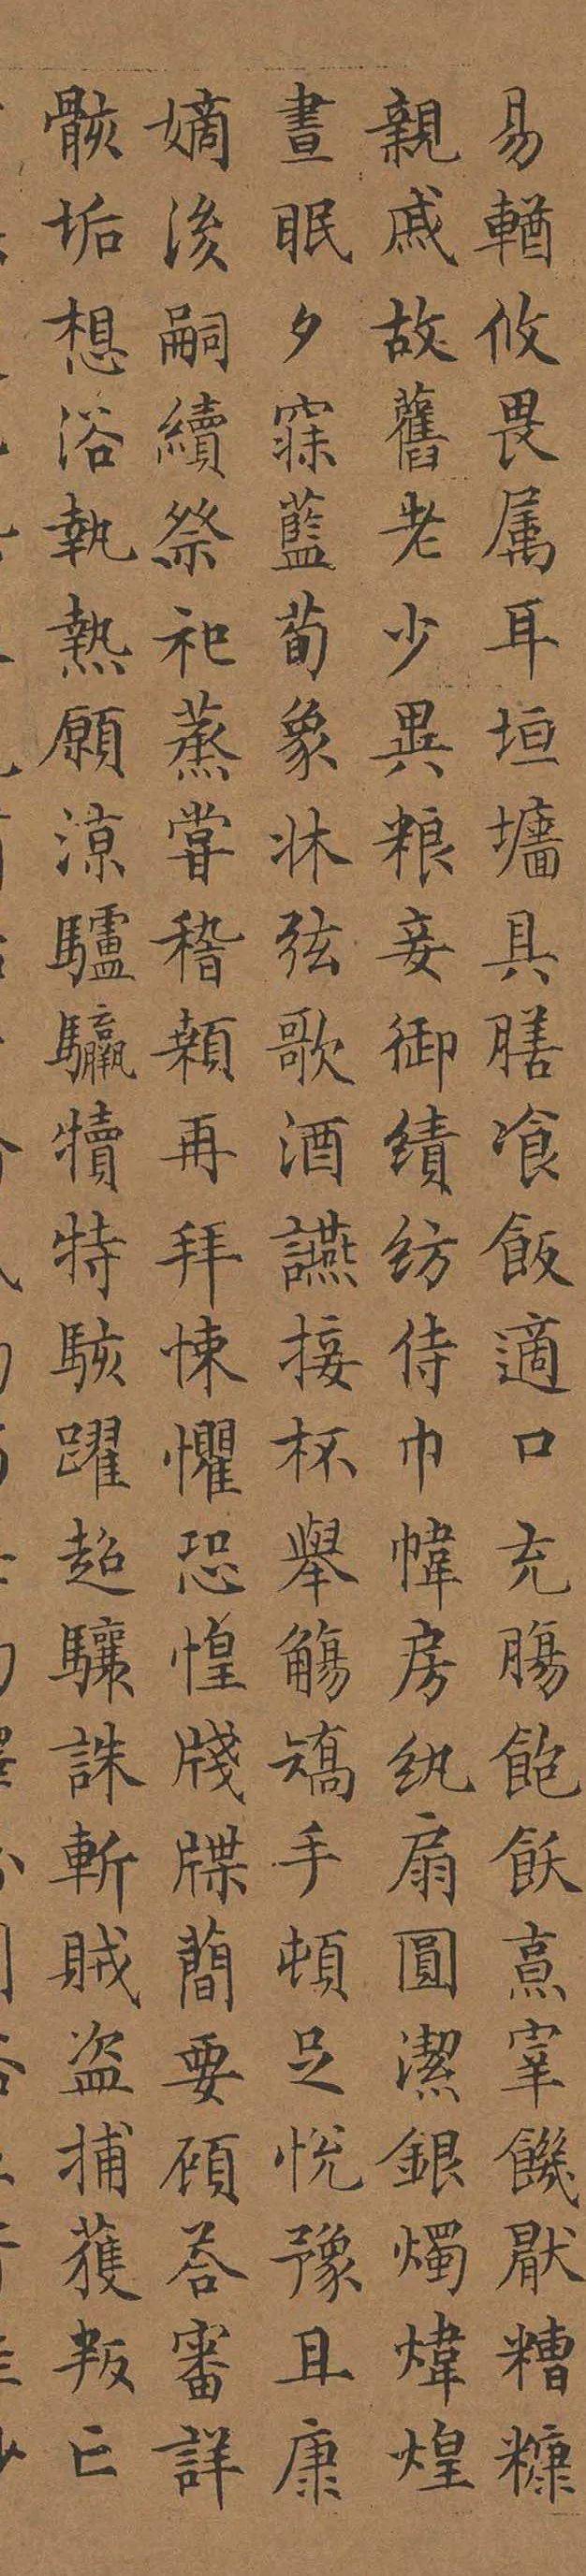 易輶攸畏属耳垣墻具膳飡飯適口充腸飽飫烹宰饑猒糟糠
親戚故舊老少異粮妾御績紡侍巾幃房紈扇圓潔銀燭煒煌
晝眠夕寐藍荀象牀弦歌酒讌接杯舉觴矯手頓足悅豫且康
嫡後嗣續祭祀蒸嘗稽顙再拜悚懼恐惶牋牒蕳要顧荅審詳
骸垢想浴執熱願凉驢驘犢特駭躍超驤誅斬賊盗捕獲叛亡